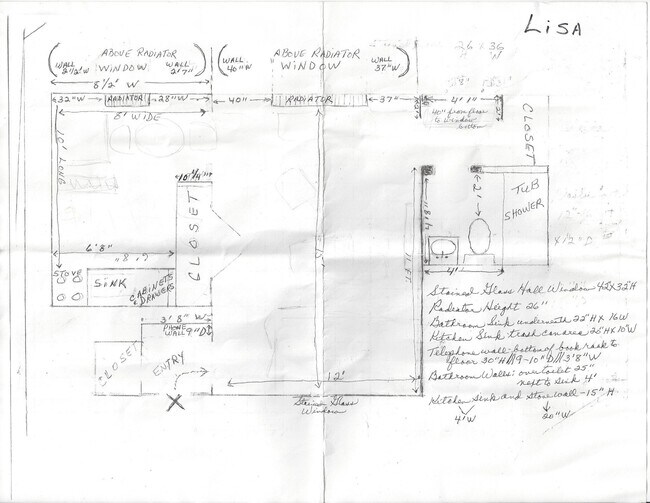 LISA
ABOVE RADIATOR
WINDOW
WALL
WALL
2'7"
ABOVE RADIATOR
WINDOW
WALL
40"W
WALL
37"W
26 x 36
8 1/2' W
32"W
RADIATOR
28"W
40"
RADIATOR
37"
4'1"
8' WIDE
40" from floor
to window
bottom
CLOSET
10' LONG
10 1/4"
CLOSET
TUB
SHOWER
2'1"
6'8"
STOVE
SINK
CABINETS
& DRAWERS
4'
3'8" W
PHONE
WALL 9"D
CLOSET
ENTRY
X
12'
Stained Glass
Window
Stained Glass Hall Window 42X32"H
Radiator Height 26"
Bathroom Sink underneath 22"H X 16W
Kitchen Sink trash can area 26"H X 10"W
Telephone wall-bottom of book rack to
floor 30"H//9-10"D//3'8"W
Bathroom Walls: over toilet 25"
next to sink 4'
Kitchen Sink and stove wall -15" H
4'W
20"W